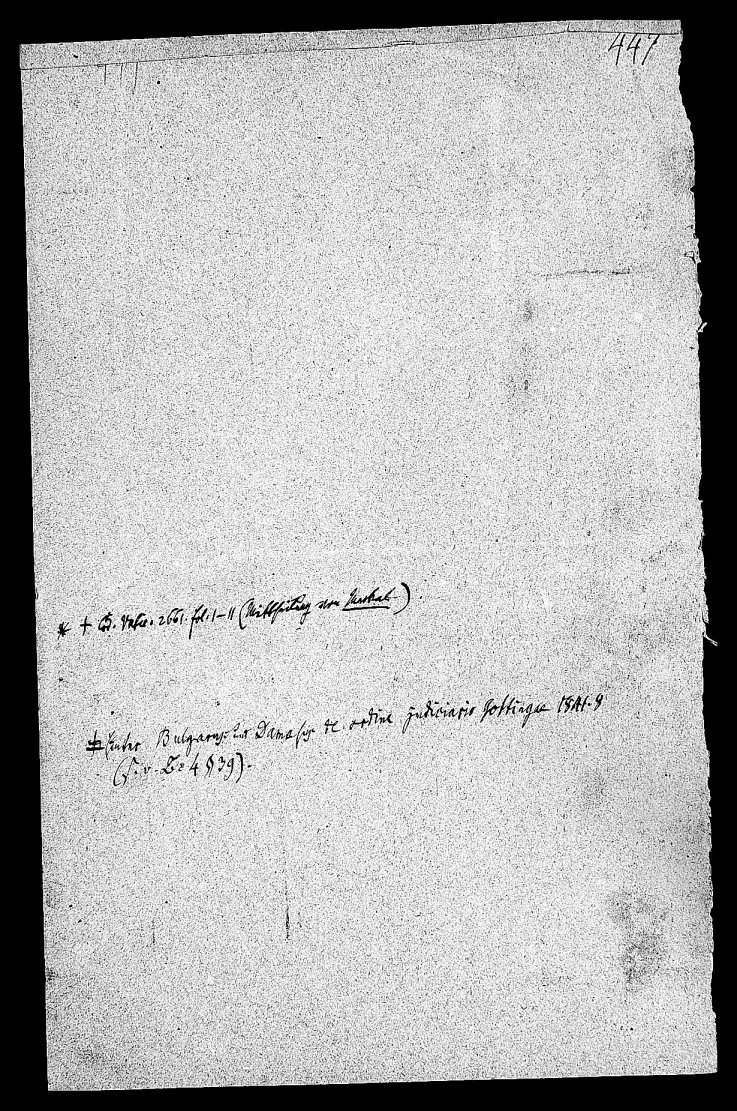 447
* † Cod. Vatic. 2661. fol. 1–11 (Mittheilung von Merkel).
‡ hinter Bulgarus und Damasus de ordine judiciario Gottingae 1841. 8
(s. v. Bd 4 § 39).